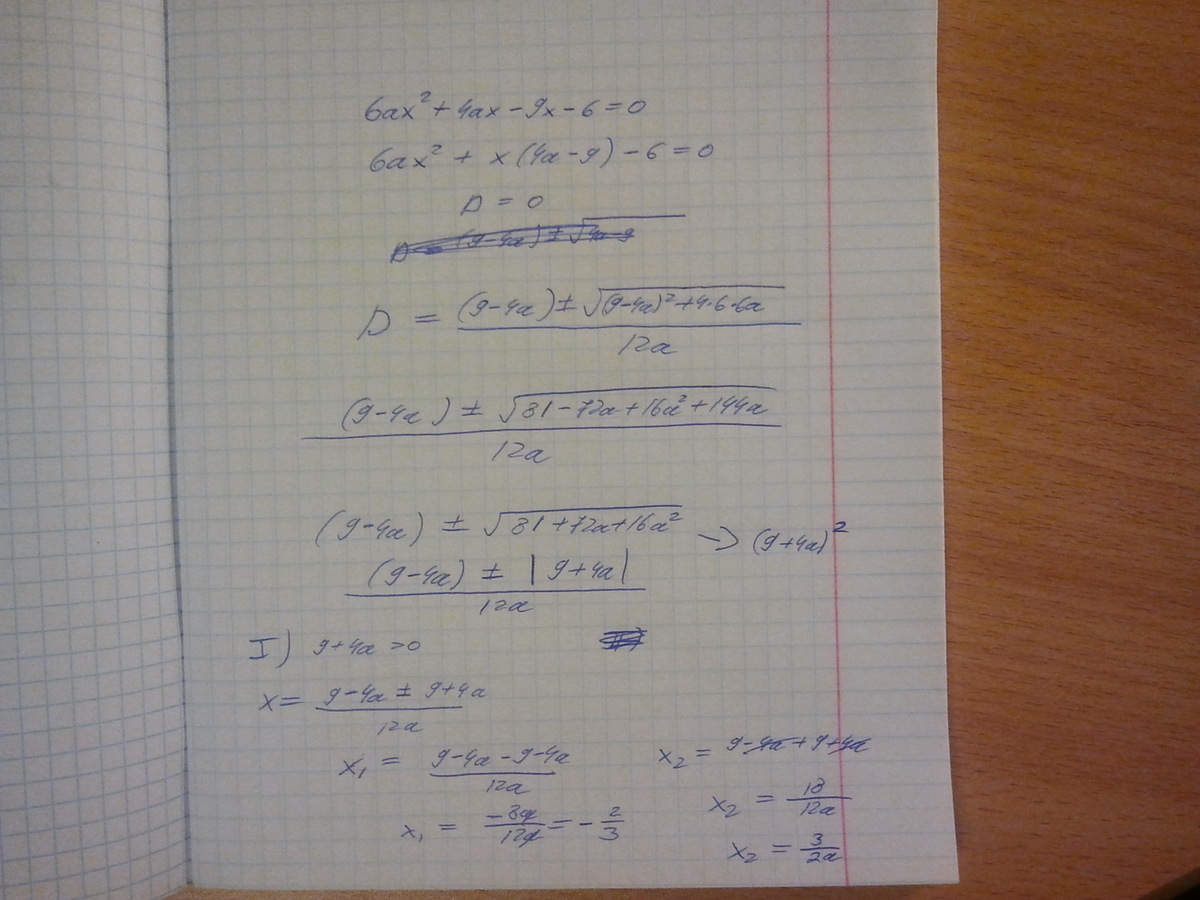 6ax² + 4ax - 9x - 6 = 0
6ax² + x(4a - 9) - 6 = 0
D = 0
D = (9-4a) ± √4a-9
D = ((9-4a) ± √((9-4a)² + 4·6·6a)) / 12a
((9-4a) ± √(81 - 72a + 16a² + 144a)) / 12a
(9-4a) ± √(81 + 72a + 16a²) → (9+4a)²
((9-4a) ± |9+4a|) / 12a
I) 9+4a >0
x = (9-4a ± 9+4a) / 12a
x₁ = (9-4a-9-4a) / 12a
x₂ = 9-4a+9+4a
x₁ = -8a/12a = -2/3
x₂ = 18/12a
x₂ = 3/2a